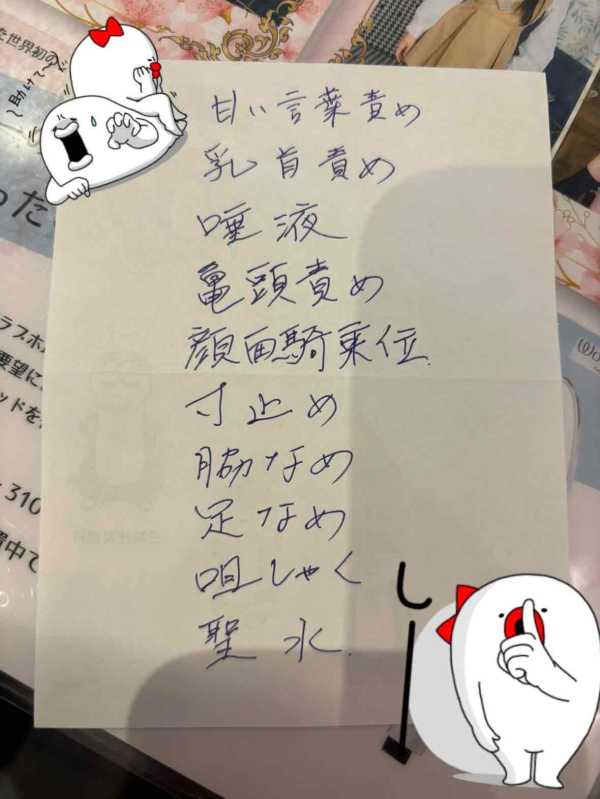 た世界初の
〜助けて〜
甘い言葉責め
乳首責め
った
唾液
亀頭責め
ラブホ
顔面騎乗位
要望に
ッドを
寸止め
脇なめ
310
足なめ
置中で
咀しゃく
しー
聖水